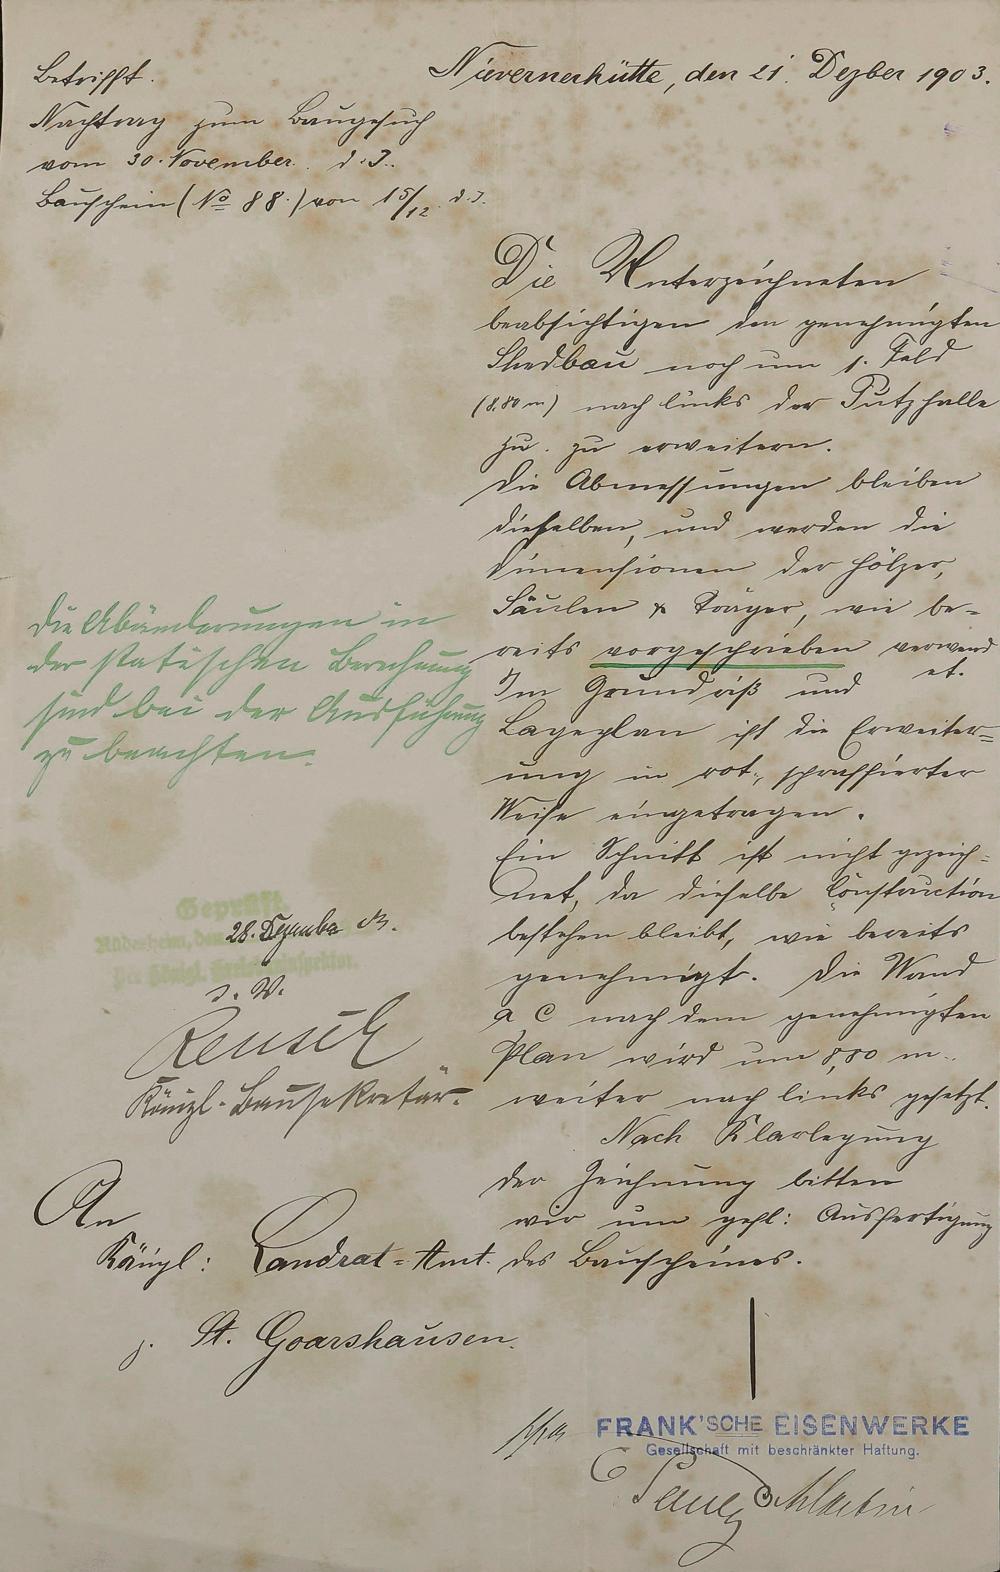 Betrifft.
Nachtrag zum Baugesuch
vom 30. November. d. J.
Bauschein (No 88.) von 15/12. d. J.
Nievernerhütte, den 21. Dezber 1903.
Die Unterzeichneten
beabsichtigen den genehmigten
Shedbau noch um 1. Feld
(8,80 m) nach links der Putzhalle
zu. zu erweitern.
Die Abmessungen bleiben
dieselben, und werden die
Dimensionen der Hölzer,
Säulen & Träger, wie be=
reits vorgeschrieben verwend
et.
Im Grundriß und
Lageplan ist die Erweiter=
ung in rot., schraffierter
Weise eingetragen.
Ein Schnitt ist nicht gezeich=
net, da dieselbe Construction
bestehen bleibt, wie bereits
genehmigt. Die Wand
a c nach dem genehmigten
Plan wird um 8,80 m.
weiter nach links gesetzt.
Nach Klarlegung
der Zeichnung bitten
wir um gefl: Ausfertigung
des Bauscheines.
Die Abänderungen in
der statischen Berechnung
sind bei der Ausführung
zu beachten.
Geprüft.
Rüdesheim, den 28. Dezember 03.
Der Königl. Kreisbauinspektor.
I. V.
Königl. Bausekretär.
An
Königl: Landrat=Amt.
z. St. Goarshausen.
ppa
FRANK'SCHE EISENWERKE
Gesellschaft mit beschränkter Haftung.